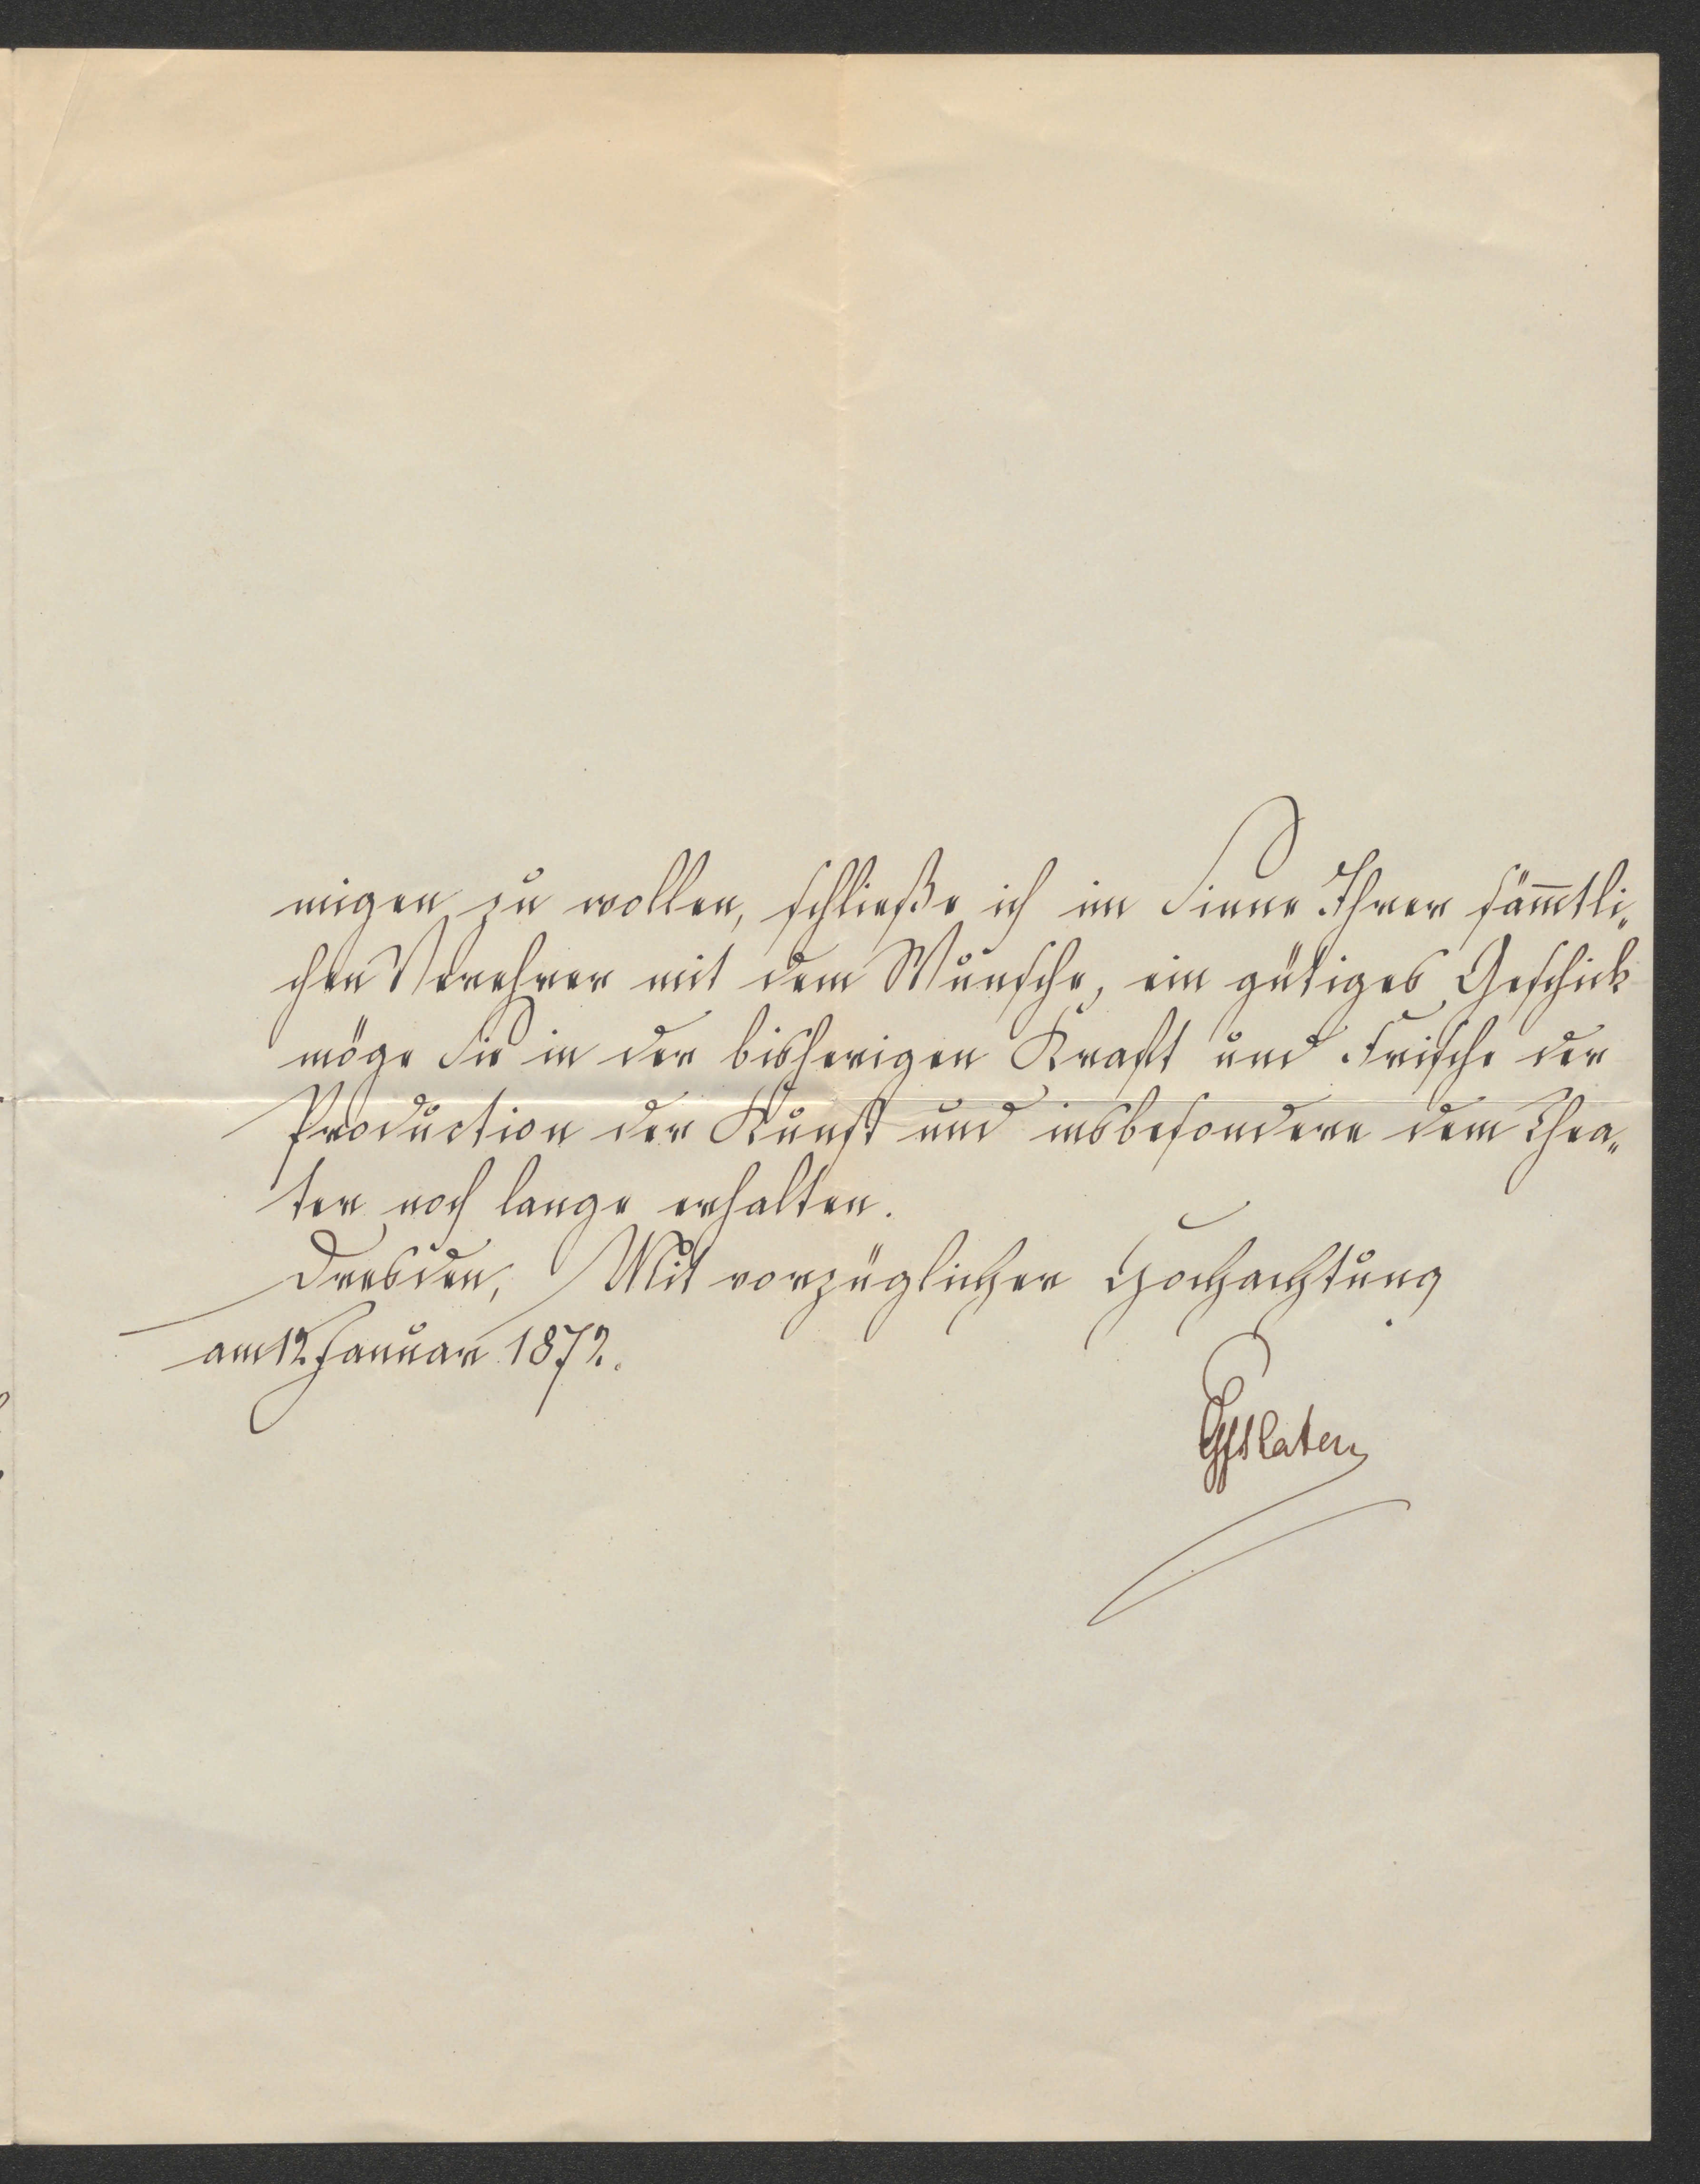 migen zu wollen, schließe ich im Sinne Ihrer säm̅tli„
chen Verehrer mit dem Wunsche, ein gütiges Geschick
möge Sie in der bisherigen Kraft und Frische der
Production der Kunst und insbesondere dem Thea„
ter noch lange erhalten.
Dresden, Mit vorzüglicher Hochachtung
am 12. Januar 1872.
GfPlaten